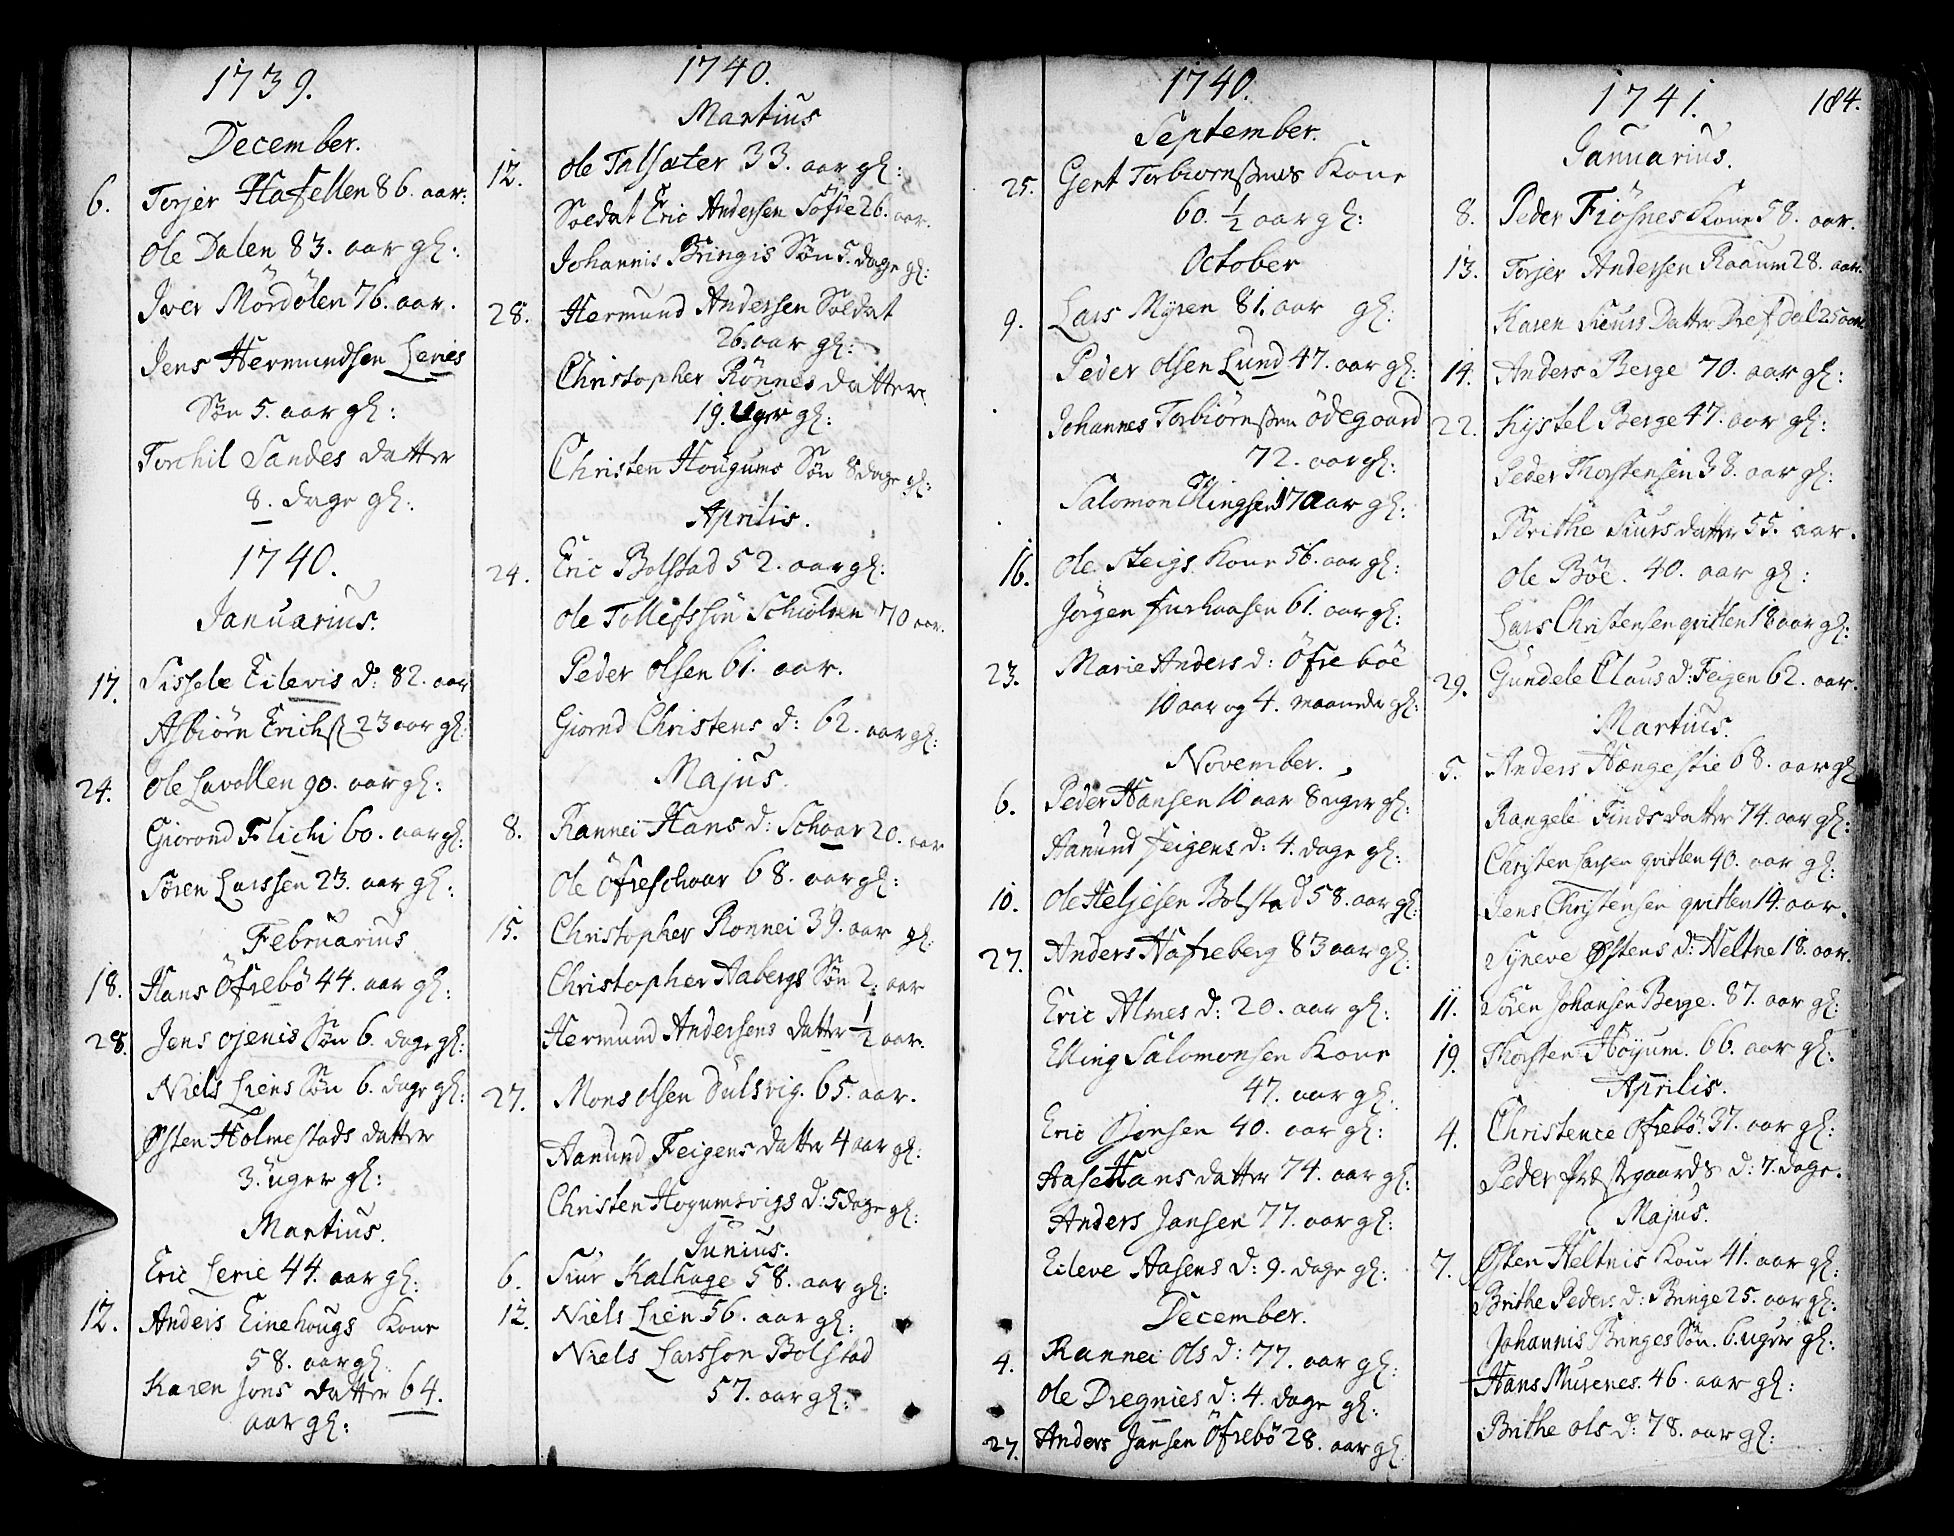 1739.
December.
6. Torjer Hafellen 86. aar:
Ole Dalen 83. aar gl:
Iver Mördölen 76. aar.
Jens Hermundsen Leries
Søn 5. aar gl:
Torchil Sandes datter
8. dage gl:
1740.
Januarius.
17. Sissele Eilevis d: 82. aar
Asbiörn Erichs 23 aar gl:
24. Ole Lavollen 90. aar gl:
Giorond Flichi 60. aar gl:
Søren Larssen 23. aar gl:
Februarius
18. Hans Öfrebø 44. aar gl:
28. Jens Ojenis Søn 6. dage gl:
Niels Liens Søn 6. dage gl:
Østen Holmestads datter
3. uger gl:
Martius.
Eric Lerie 44. aar gl:
12. Anders Einehougs Kone
58. aar gl:
Karen Jons datter 64.
aar gl:
1740.
Martius
12. Ole Talsæter 33. aar gl:
Soldat Eric Andersen Söfde 26. aar.
Johannis Bringis Søn 5. dage gl:
28. Hermund Andersen Soldat
26. aar gl:
Christopher Rönnes datter
19. Uger gl:
Christen Hougums Søn 8 dage gl:
Aprilis.
24. Eric Bolstad 52. aar gl:
Ole Tollefssön Schiolden 70 aar.
Peder Olsen 61. aar.
Giornd Christens d: 62. aar gl:
Majus.
8. Rannei Hans d: Schaar 20. aar
Ole Öfreschaar 68. aar gl:
15. Christopher Ronnei 39. aar gl:
Christopher Aabergs Søn 2. aar
Hermund Andersens datter 1/2 aar.
27. Mons Olsen Dulsvig. 65. aar.
Aamund Feigens datter 4 aar gl:
Christen Hoyumsvigs d: 5 dage gl:
Junius.
6. Siur Kalhage 58. aar gl:
12. Niels Lien 56. aar gl:
Niels Larsson Bolstad
57. aar gl:
1740.
September.
25. Gert Torbiörnssens Kone
60. 1/2 aar gl:
October
9. Lars Myren 81. aar gl:
Peder Olsen Lund 47. aar gl:
Johannes Torbiörnssen Ödegaard
72. aar gl:
Salomon 70 aar gl:
16. Ole Steigs Kone 56. aar gl:
Jörgen Furhaasen 61. aar gl:
23. Marie Anders d: Öfre böe
10 aar og 4. maaneder gl:
November.
6. Peder Hansen 10 aar 8 uger gl:
Aamund Feigens d: 4. dage gl:
10. Ole Heljesen Bolstad 58. aar gl:
27. Anders Hafreberg 83 aar gl:
Eric Almes d: 20. aar gl:
Elling Salomonsen Kone
47. aar gl:
Eric Ojensen 40. aar gl:
Aase Hans datter 74. aar gl:
Anders Jansen 77. aar gl:
Eileve Aasens d: 9. dage gl:
December.
4. Rannei Ols d: 77. aar gl:
Ole Dregnies d: 4. dage gl:
27. Anders Jansen Öfrebö 28. aar gl:
1741. 184.
Januarius.
8. Peder Fiösnes Kone 58. aar.
13. Torjer Andersen Raaum 28. aar.
Karen Siurs Datter Drefdal 25 aar
14. Anders Berge 70. aar gl:
22. Kystel Berge 47. aar gl:
Peder Thorstensen 38. aar gl:
Brithe Siurs datter 55. aar.
Ole Böe. 40. aar gl:
Lars Christensen qvitten 18 aar gl:
29. Gundele Claus d: Feigen 62. aar.
Martius.
5. Anders Hængestie 68. aar gl
Rangele Finds datter 74. aar gl:
Christen Larsen qvitten 40. aar gl:
Jens Christensen qvitten 14. aar.
Syneve Østens d: Heltne 18. aar.
11. Søren Johansen Berge. 87. aar gl:
19. Thorsten Höyum. 66. aar gl:
Aprilis.
4. Christence Öfrebö. 37. aar gl:
Peder Præstegaards d: 7. dage.
Majus.
7. Østen Heltnis Kone 41. aar gl:
Brithe Peders d: Bringe 25. aar gl:
Johannis Bringes Søn. 6. uger gl:
Hans Murenes. 46. aar gl:
Brithe Ols d: 78. aar gl: